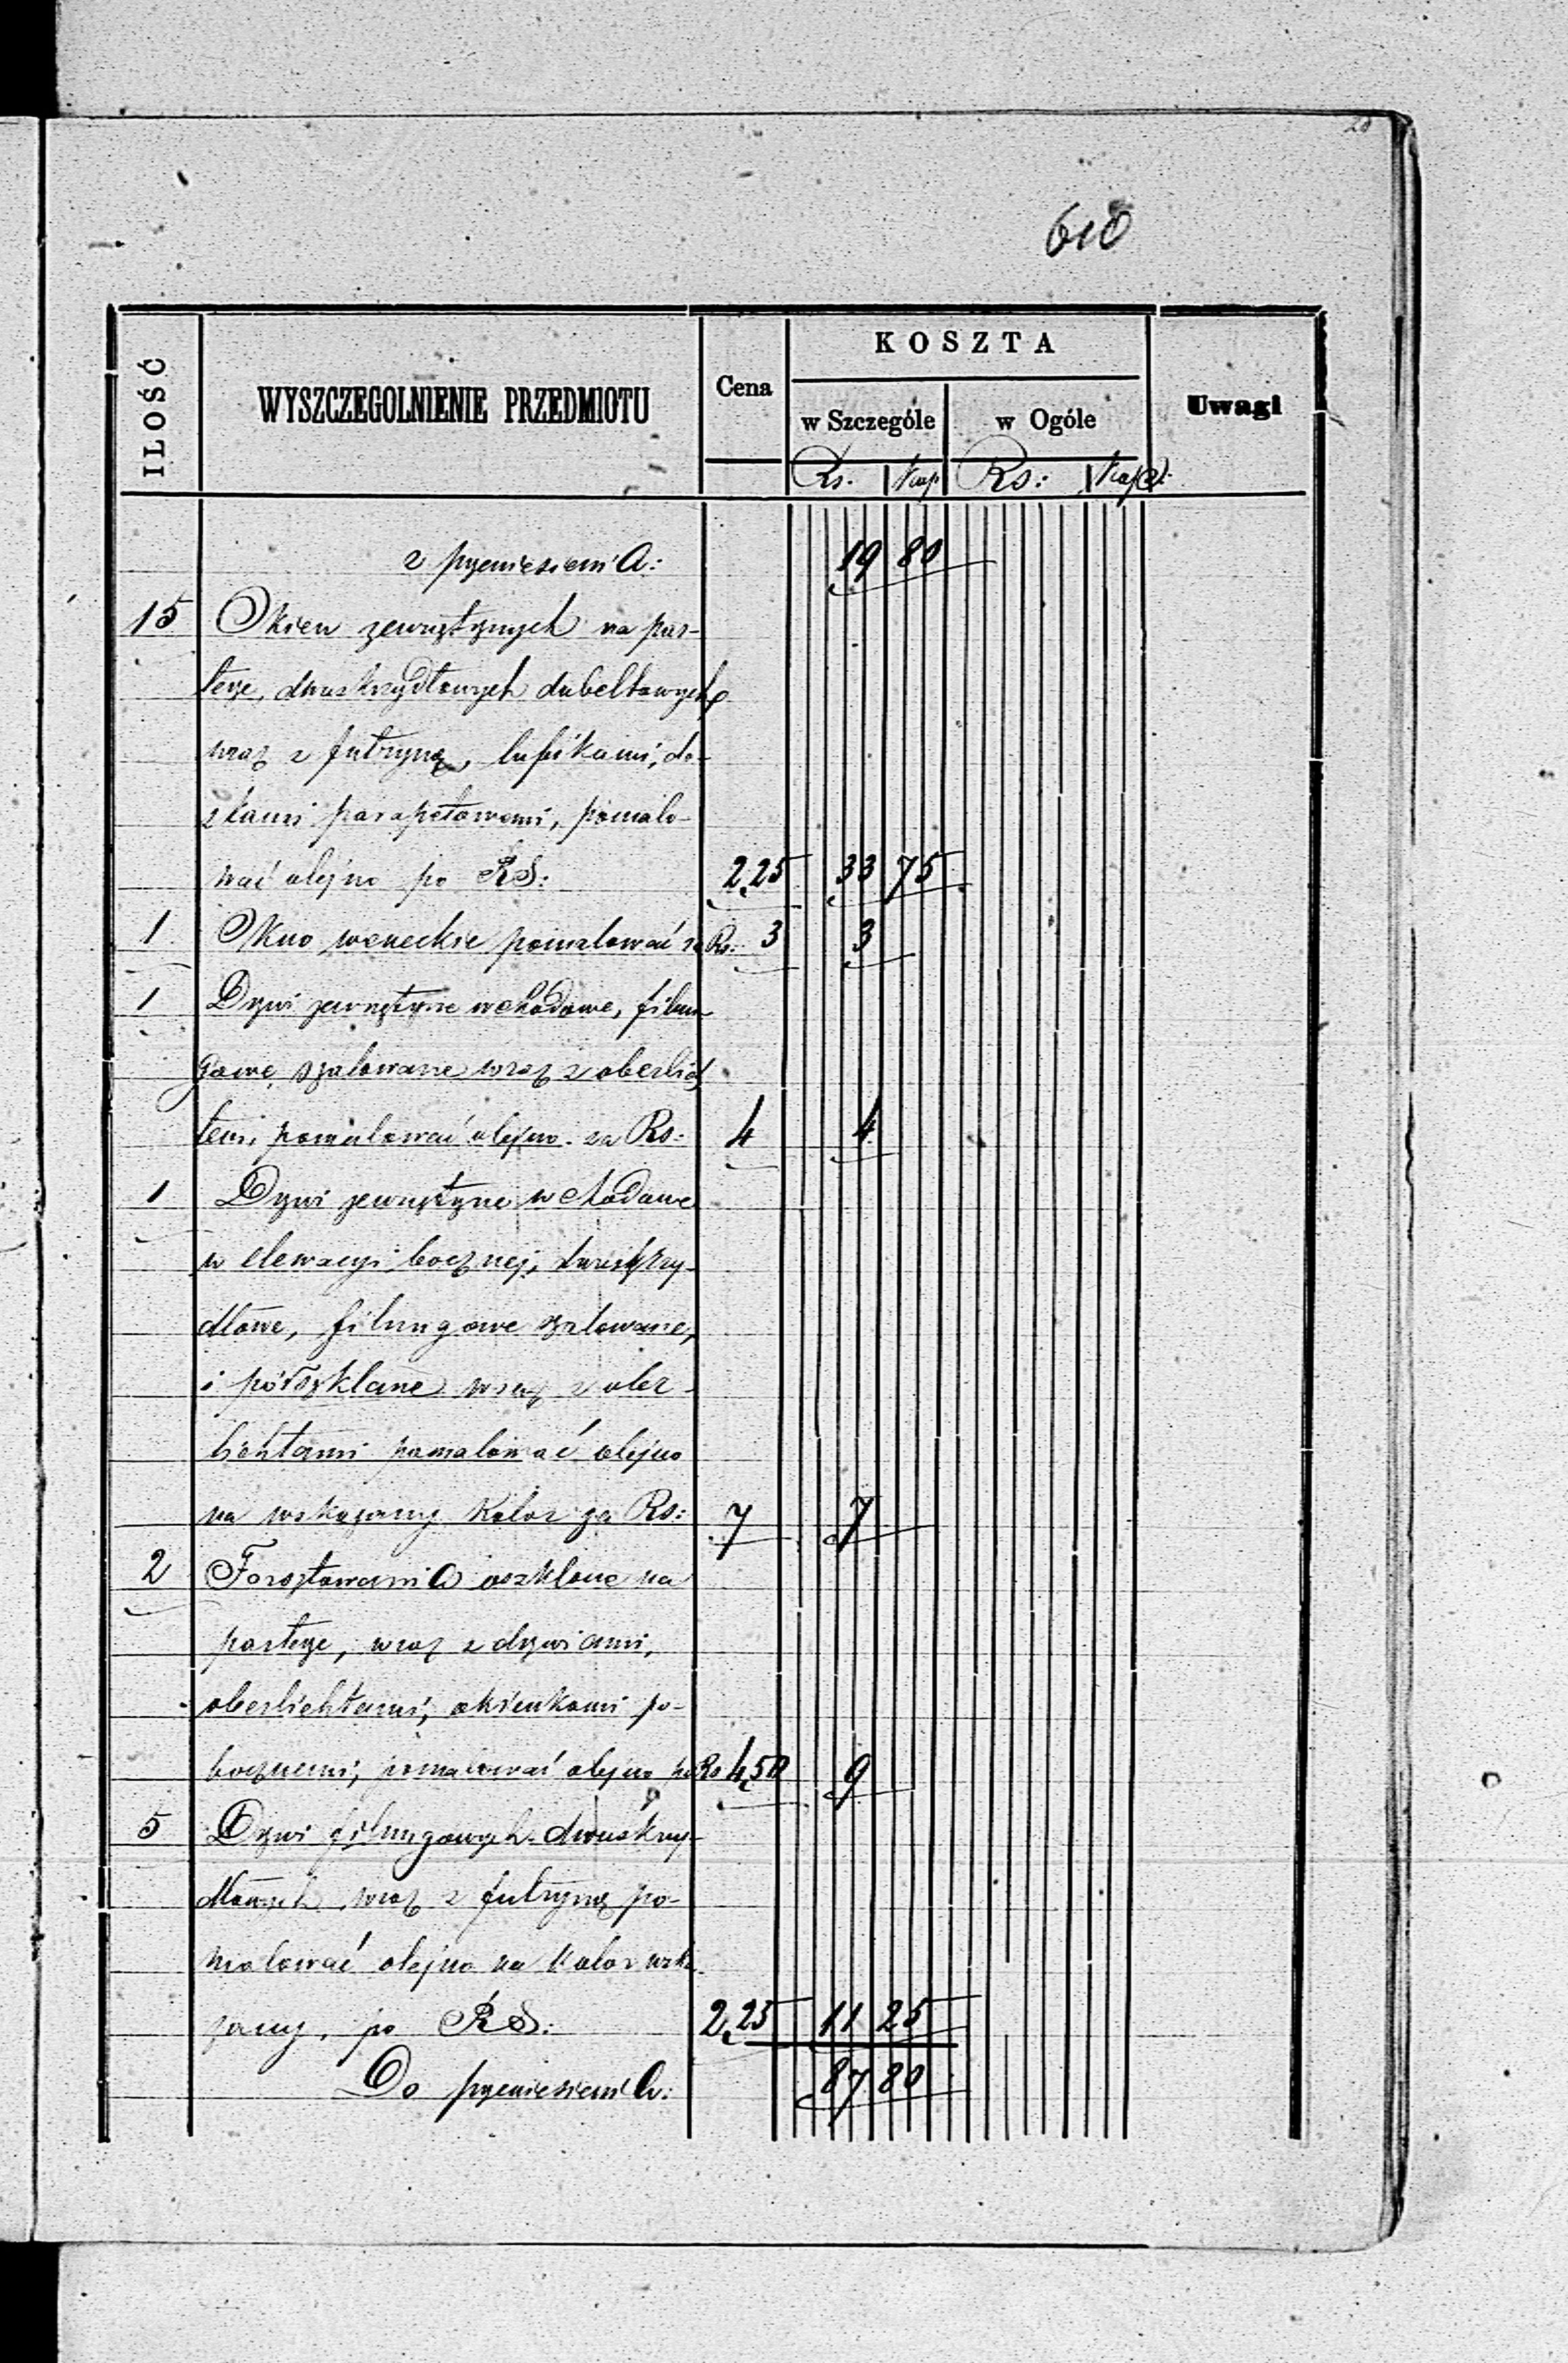 20
610
ILOŚĆ WYSZCZEGOLNIENIE PRZEDMIOTU Cena KOSZTA Uwagi
w Szczególe w Ogóle
Rs. Kop. Rs: Kop:
z przeniesieniA: 19 80
15 Okien zewnętrznych na par-
terze, dwuskrzydłowych dubeltowych
wraz z futryną, lufcikami, de-
skami parapetowemi, pomalo-
wać olejno po RS: 2,25 33 75
1 Okno weneckie pomalować za Rs: 3 3
1 Drzwi zewnętrzne wchodowe, filun-
gowe, szalowane wraz z oberlich
tem, pomalować olejno za Rs: 4 4
1 Drzwi zewnętrzne wchodowe
w elewacyi bocznej, dwuskrzy-
dłowe, filungowe szalowane,
i półszklane wraz z ober-
lichtami pomalować olejno
na wskazany kolor za Rs: 7 7
2 ForsztowaniA oszklone na
parterze, wraz z drzwiami,
oberlichtami, okienkami po-
bocznemi, pomalować olejno po Rs 4,50 9
5 Drzwi filungowych dwuskrzy-
dłowych wraz z futryną po-
malować olejno na kolor wska-
zany, po RS: 2,25 11 25
Do przeniesieniA: 87 80